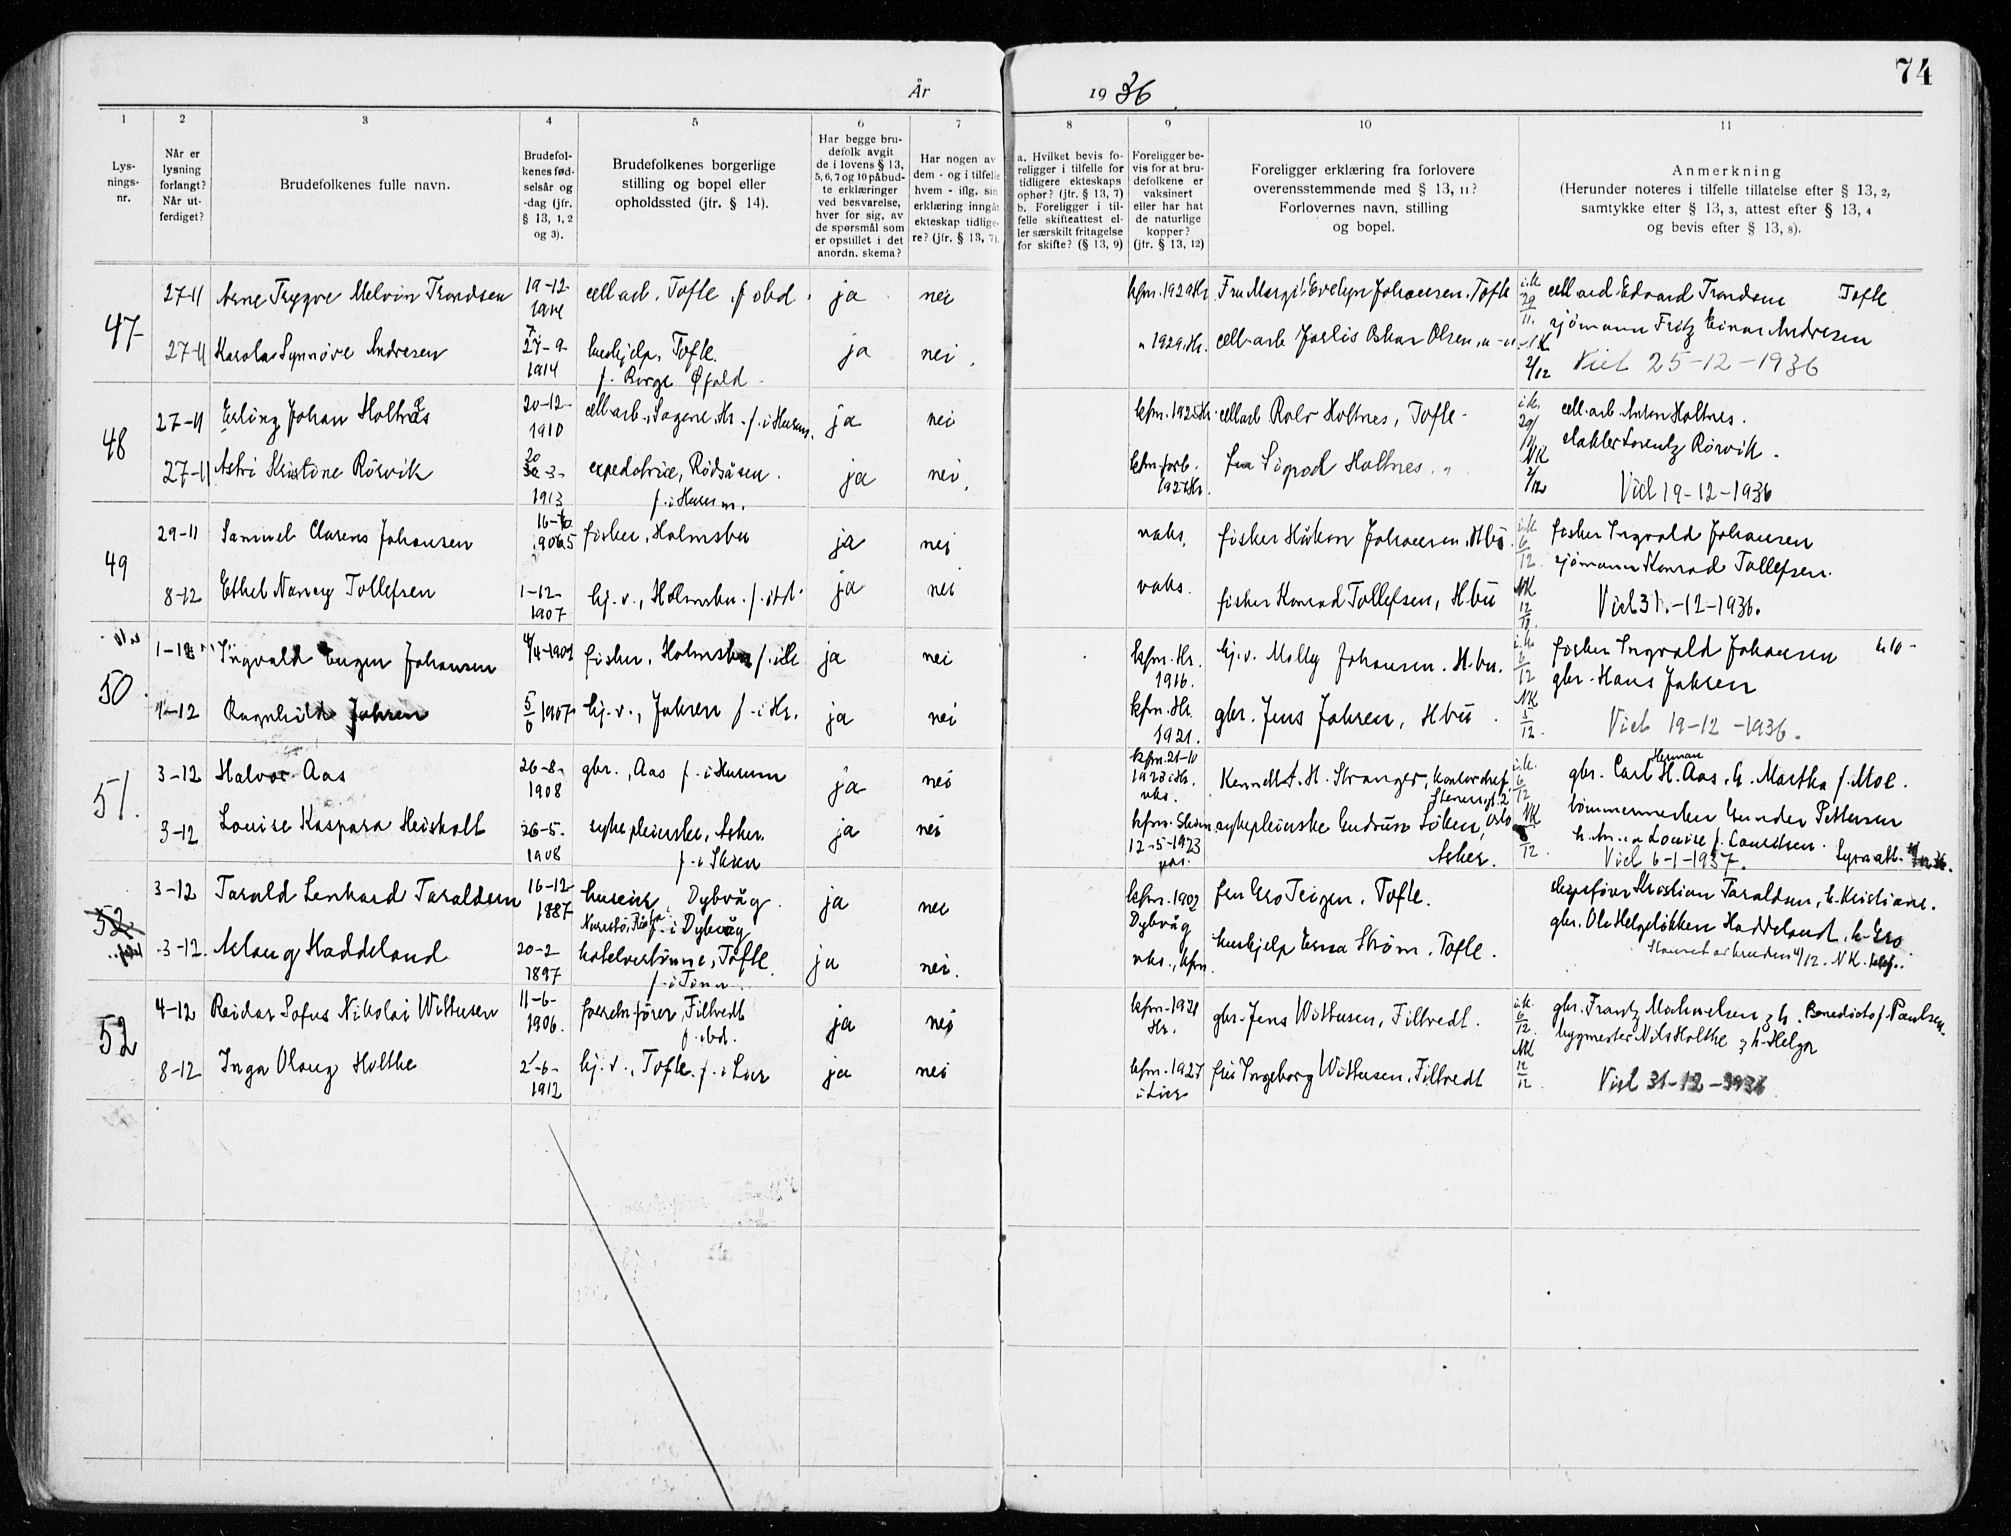 74
År 1936
1 2 3 4 5 6 7 8 9 10 11
Lys-
nings-
nr.
Når er
lysning
forlangt?
Når ut-
ferdiget?
Brudefolkenes fulle navn.
Brudefol-
kenes fød-
selsår og
-dag (jfr.
§ 13, 1, 2
og 3).
Brudefolkenes borgerlige
stilling og bopel eller
opholdssted (jfr. § 14).
Har begge bru-
defolk avgit
de i lovens § 13,
5, 6, 7 og 10 påbud-
te erklæringer
ved besvarelse,
hver for sig, av
de spørsmål som
er opstillet i det
anordn. skema?
Har nogen av
dem - og i tilfelle
hvem - iflg. sin
erklæring inngåt
ekteskap tidlige-
re? (jfr. § 13, 7).
a. Hvilket bevis fo-
religger i tilfelle for
tidligere ekteskaps
ophør? (jfr. § 13, 7)
b. Foreligger i til-
felle skifteattest el-
ler særskilt fritagelse
for skifte? (§ 13, 9)
Foreligger be-
vis for at bru-
defolkene er
vaksinert
eller har hat
de naturlige
kopper?
(jfr. § 13, 12)
Foreligger erklæring fra forlovere
overensstemmende med § 13, 11?
Forlovernes navn, stilling
og bopel.
Anmerkning
(Herunder noteres i tilfelle tillatelse efter § 13, 2,
samtykke efter § 13, 3, attest efter § 13, 4
og bevis efter § 13, 8).
47
27-11 Arne Trygve Melvin Trondsen 19-12- cell arb. Tofte f. obd. ja nei kfm. 1929 Hr. Fru Margit Evelyn Johansen, Tofte cell arb Edvard Trondsen Tofte
27-11 Karola Synnøve Andresen 27-9- 1914 hushjelp, Tofte. ja nei. " 1929. Hr. cell. arb Oskar Olsen, sjømann Fritz Einar Andresen
f. Borge Øfold
2/12 Viet 25-12-1936
48
27-11 Erling Johan Holtnes 20-12- 1910 cell arb., Sagene, Hr. f. i Hurum. ja nei kfm. 1925 Hr. cell arb Rolv Holtnes, Tofte cell. arb Anton Holtnes.
27-11 Astri Kristine Rörvik 20 -3- 1913 expeditrise, Rödsåsen. f. i Hurum. ja nei, kfm. forb. 1927 Hr. fru Sigrod Holtnes. " Lorentz Rörvik.
2/12 Viet 19-12-1936
49
29-11 Samuel Clarens Johansen 16-10 1905 fisker, Holmsbu ja nei vaks. fisker Håkon Johansen, Hbu fisker Ingvald Johansen
8-12 Ethel Nancy Tollefsen 1-12- 1907 hj. v., Holmsbu f. itd. ja nei vaks. fisker Konrad Tollefsen, Hbu sjømann Konrad Tollefsen.
Viet 31.-12-1936.
50.
1-12 Ingvald Eugen Johansen fisker, Holmsbu f. ja nei kfm. Hr. 1916. hj. v. Molly Johansen. H.bu. fisker Ingvald Johansen
-12 Ragnhild Jahren 1907 hj. v., Jahren f. i Hr. ja nei kfm. Hr. 1921. gbr. Jens Jahren, Hbu gbr. Hans Jahren
Viet 19-12-1936.
51.
3-12 Halvor Aas 26-8- 1908 gbr., Aas f. i Hurum ja nei kfm. 21-10 1923 i Hr. vaks. A. H. Stranger, kontorchef, gbr. Carl Herman H. Aas, h. Martha f. Moe.
3-12 Louise Kaspara Heiskolt 26-5- 1908 sykepleierske, Asker. f. i Skien ja nei kfm. Skien 12-5-1923 sykepleierske Gudrun Löken, Asker. tömmermester Gunder Pettersen
Louise f. Lauritsen.
Viet 6-1-1937.
52
3-12 Tarald Lenhard Taraldsen 16-12- 1887 huseier, Dybvåg f. i Dybvåg ja nei kfm. 1902 Dybvåg fru Gro Teigen, Tofte. Kristian Taraldsen, h. Kristiane.
3-12. Aslaug Haddeland 20-2 1897 hotelvertinne, Tofte. f. i Tinn. ja nei. vaks., kfm. hushjelp Erna Ström, Tofte. gbr. Ole Helgelökken Haddeland, h. Gro
52
4-12 Reidar Sofus Nikolai Wittusen 11-6- 1906. Filtvedt f. obd. ja nei kfm. 1921 Hr. gbr. Jens Wittusen, Filtvedt. gbr. Frantz h. Benedicte f. Paulsen.
8-12 Inga Olaug Holthe 2-6- 1912 hj. v., Tofte. f. i Lier ja nei kfm. 1927 i Lier frk Ingeborg Wittusen, Filtvedt bygmester Nils Holthe h. Helga
Viet 31-12-1936